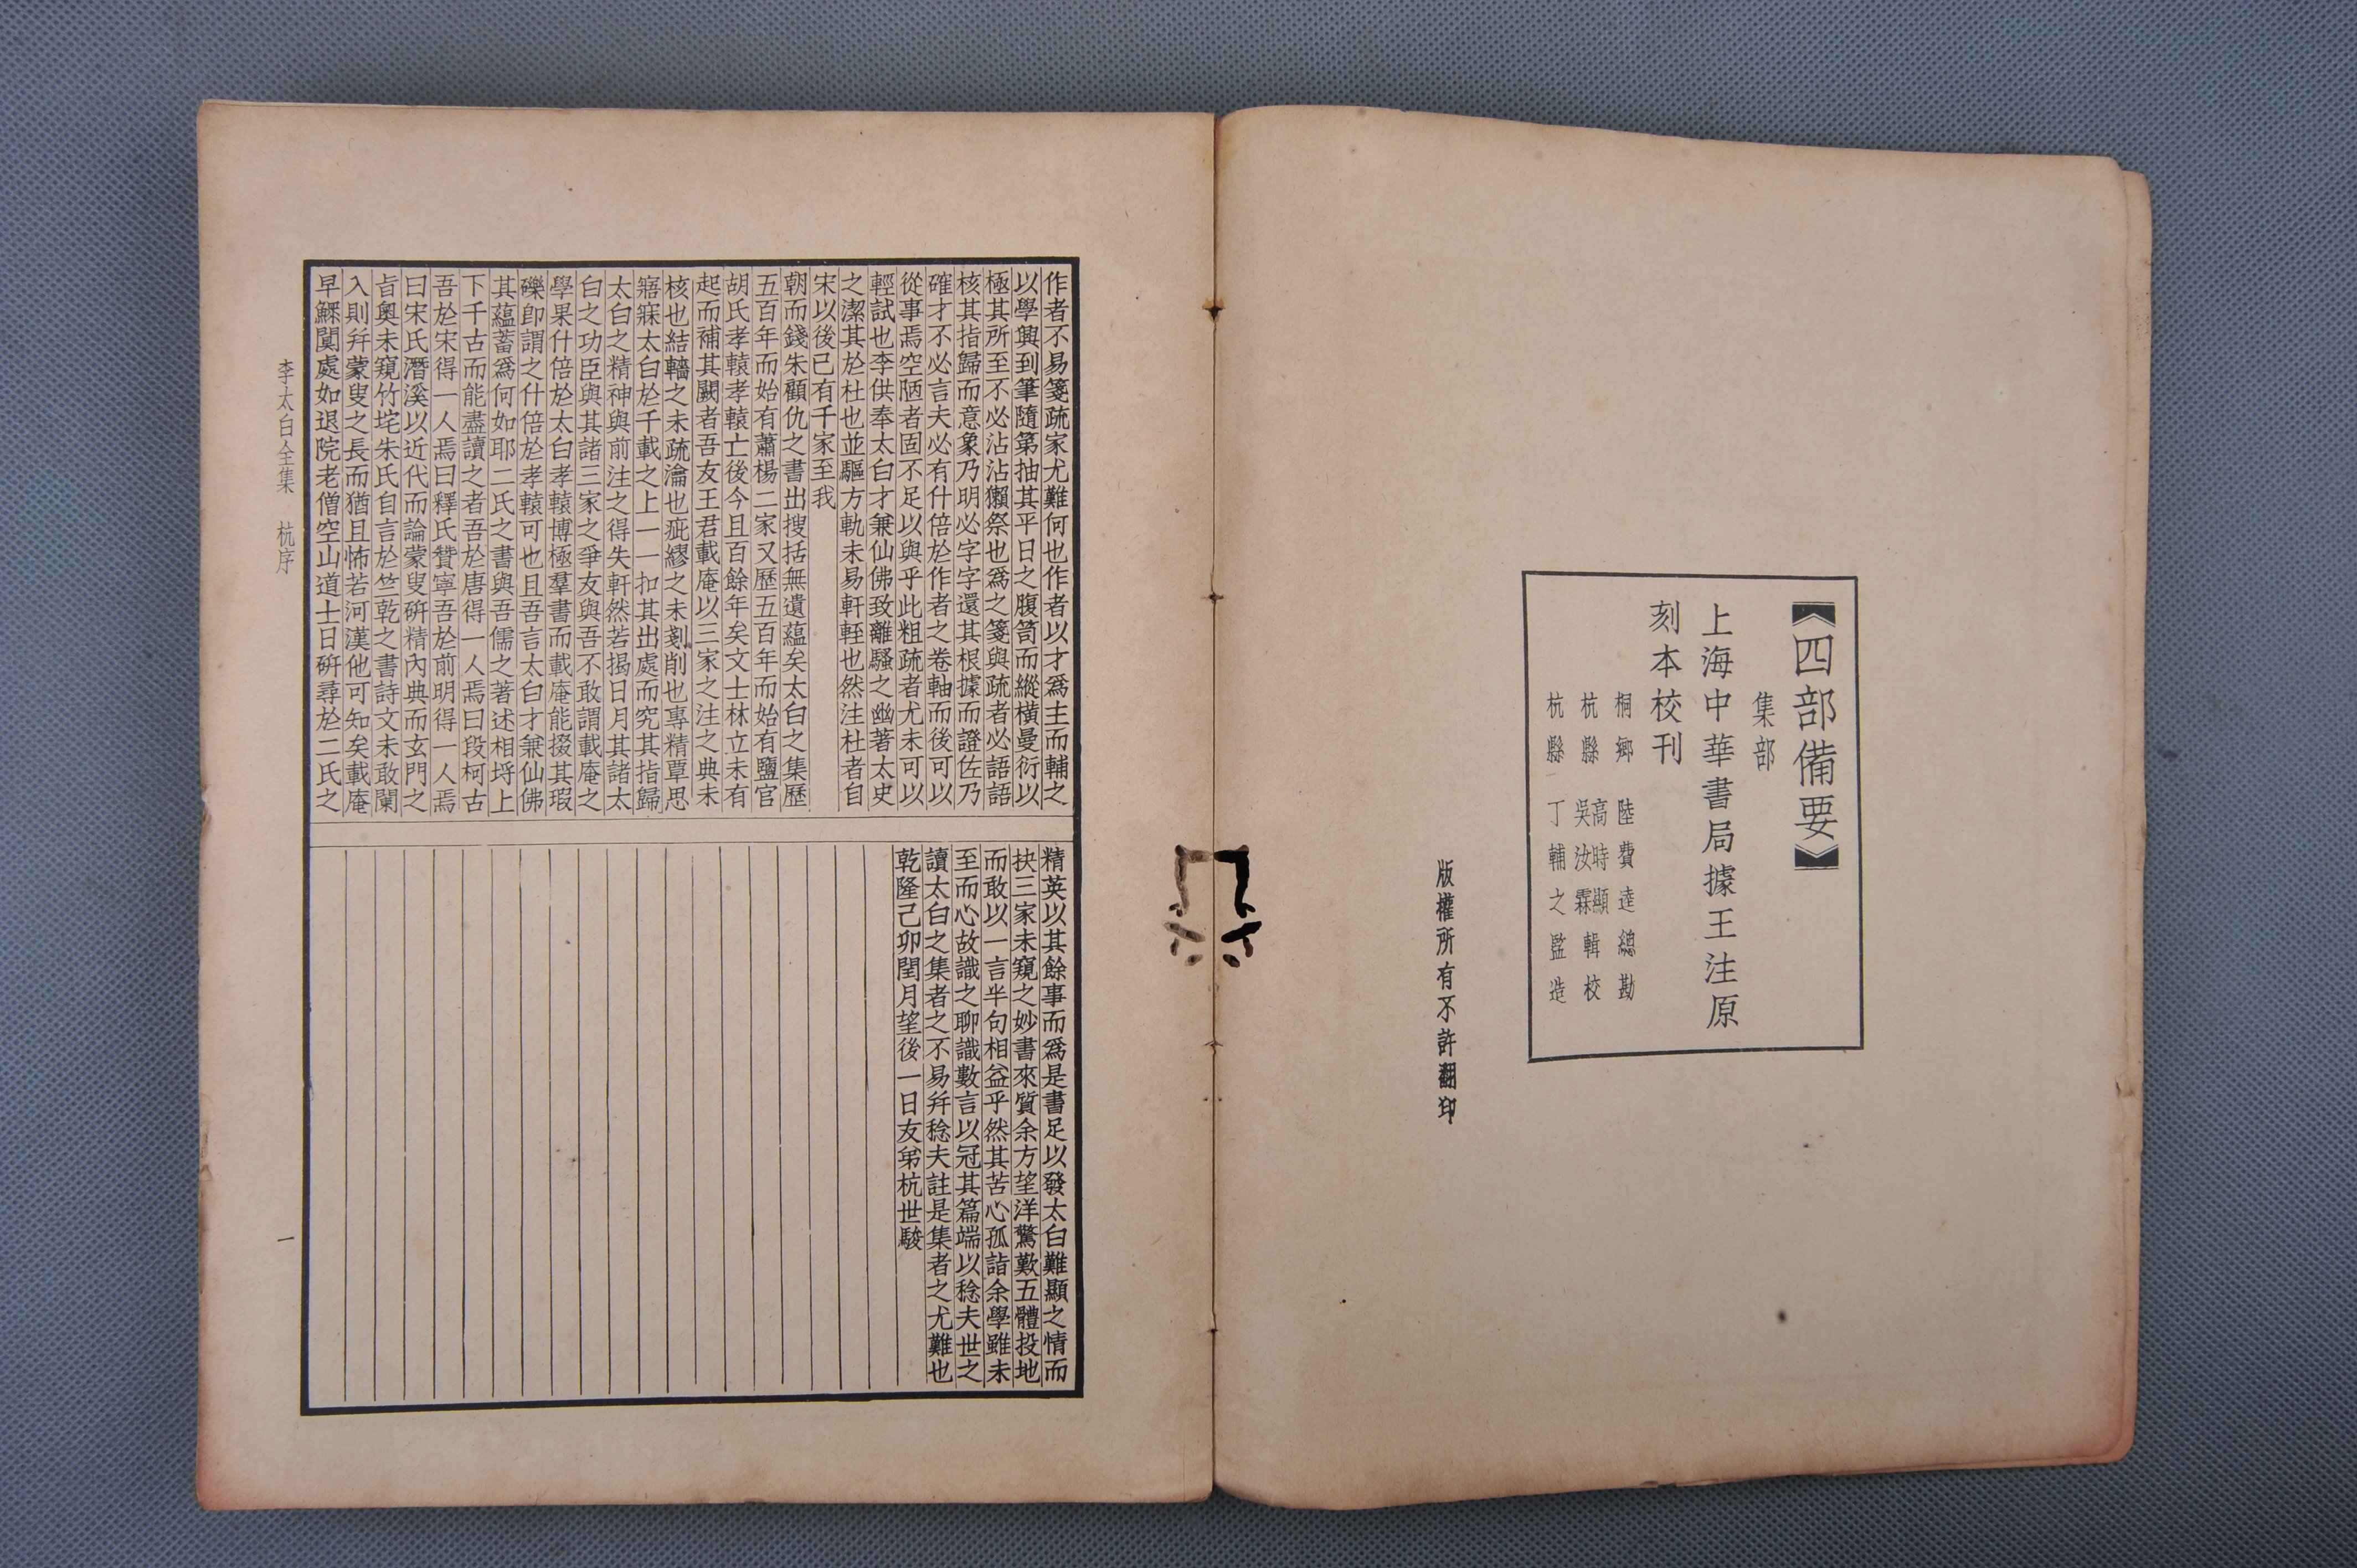 【四部備要】
集部
上海中華書局據王注原
刻本校刊
桐鄉 陸費逵總勘
杭縣 高時顯 吳汝霖 輯校
杭縣 丁輔之監造
版權所有不許翻印
作者不易箋疏家尤難何也作者以才爲主而輔之
以學興到筆隨第抽其平日之腹笥而縱橫曼衍以
極其所至不必沾沾獺祭也爲之箋與疏者必語語
核其指歸而意象乃明必字字還其根據而證佐乃
確才不必言夫必有什倍於作者之卷軸而後可以
從事焉空陋者固不足以與乎此粗疏者尤未可以
輕試也李供奉太白才兼仙佛致離騷之幽著太史
之潔其於杜也並驅方軌未易軒輊也然注杜者自
宋以後已有千家至我
朝而錢朱顧仇之書出搜括無遺蘊矣太白之集歷
五百年而始有蕭楊二家又歷五百年而始有鹽官
胡氏孝轅孝轅亡後今且百餘年矣文士林立未有
起而補其闕者吾友王君載庵以三家之注之典未
核也結轖之未疏瀹也疵繆之未剗削也專精覃思
寤寐太白於千載之上一一扣其出處而究其指歸
太白之精神與前注之得失軒然若揭日月其諸太
白之功臣與其諸三家之爭友與吾不敢謂載庵之
學果什倍於太白孝轅博極羣書而載庵能掇其瑕
礫卽謂之什倍於孝轅可也且吾言太白才兼仙佛
其蘊蓄爲何如耶二氏之書與吾儒之著述相埒上
下千古而能盡讀之者吾於唐得一人焉曰段柯古
吾於宋得一人焉曰釋氏贊寧吾於前明得一人焉
曰宋氏潛溪以近代而論蒙叟硏精內典而玄門之
旨奧未窺竹垞朱氏自言於竺乾之書詩文未敢闌
入則幷蒙叟之長而猶且怖若河漢他可知矣載庵
早鰥闃處如退院老僧空山道士日硏尋於二氏之
精英以其餘事而爲是書足以發太白難顯之情而
抉三家未窺之妙書來質余方望洋驚歎五體投地
而敢以一言半句相益乎然其苦心孤詣余學雖未
至而心故識之聊識數言以冠其篇端以稔夫世之
讀太白之集者之不易幷稔夫註是集者之尤難也
乾隆己卯閏月望後一日友弟杭世駿
李太白全集 杭序
一